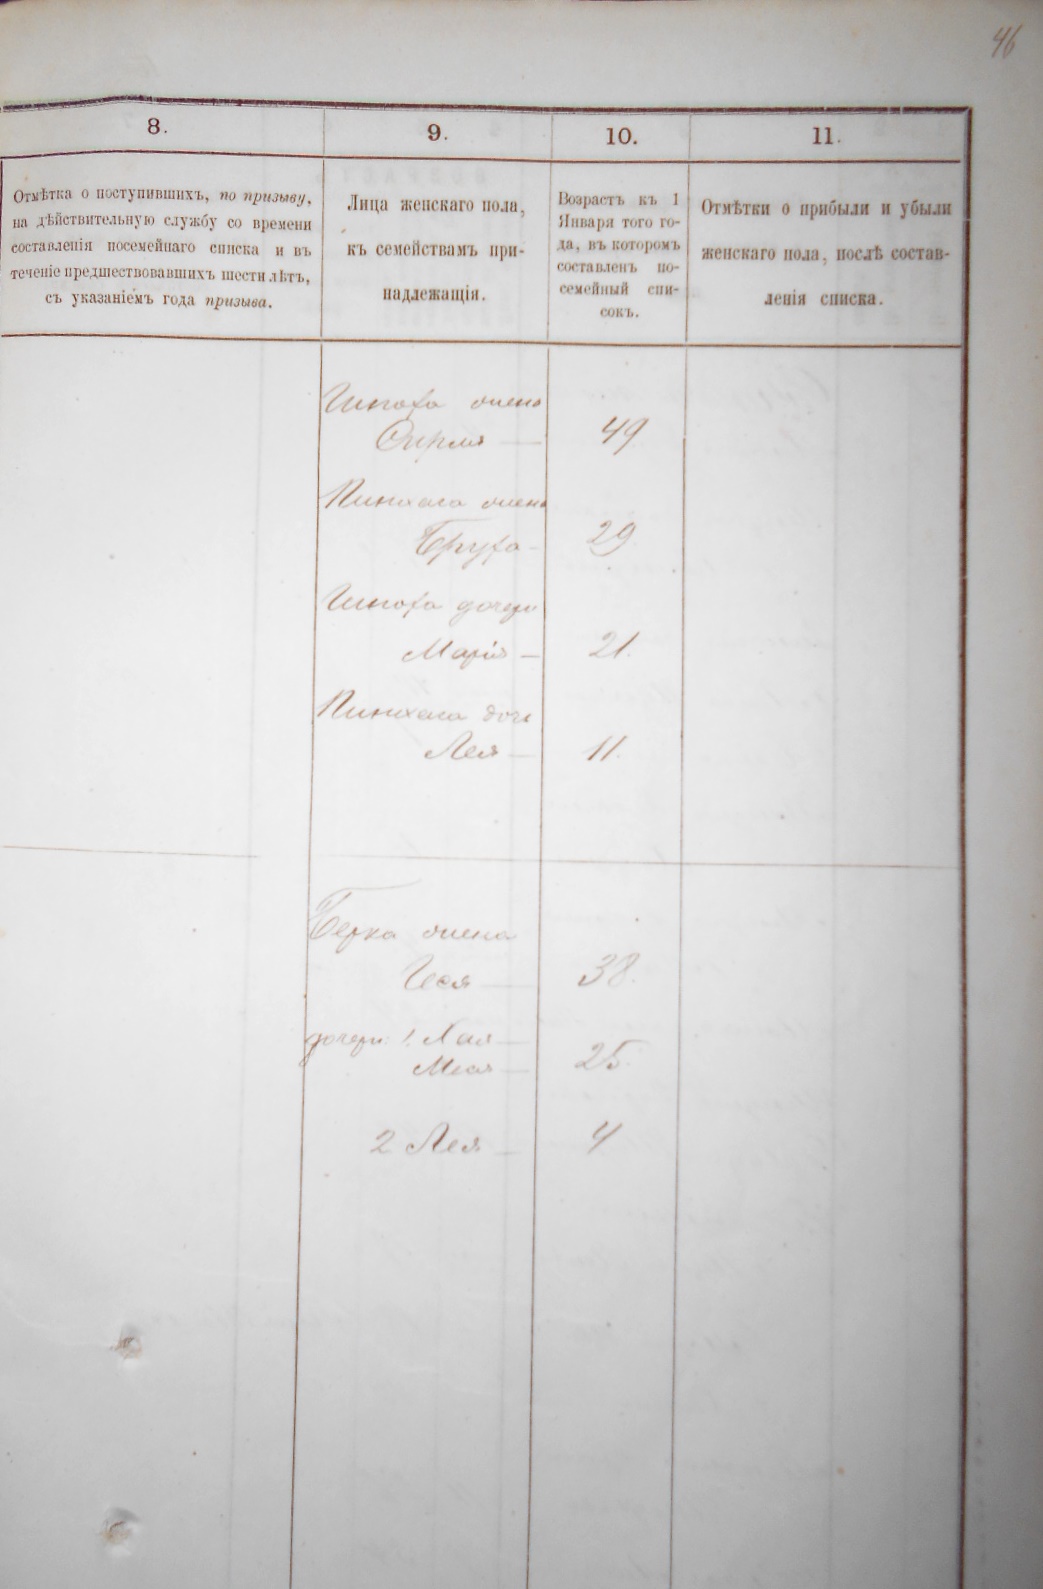 46
8.
9.
10.
11.
Отмѣтка о поступившихъ, по призыву,
на дѣйствительную службу со времени
составленія посемейнаго списка и въ
теченіе предшествовавшихъ шести лѣтъ,
съ указаніемъ года призыва.
Лица женскаго пола,
къ семействамъ при-
надлежащія.
Возрастъ къ 1
Января того го-
да, въ которомъ
составленъ по-
семейный спи-
сокъ.
Отмѣтки о прибыли и убыли
женскаго пола, послѣ состав-
ленія списка.
жена
49
Пинхаса жена
Бруха 29
дочери
Марія 21.
Пинхаса дочь
Лея 11.
Берка жена
Геся 38.
дочери: 1. Хая
25.
2 Лея 4